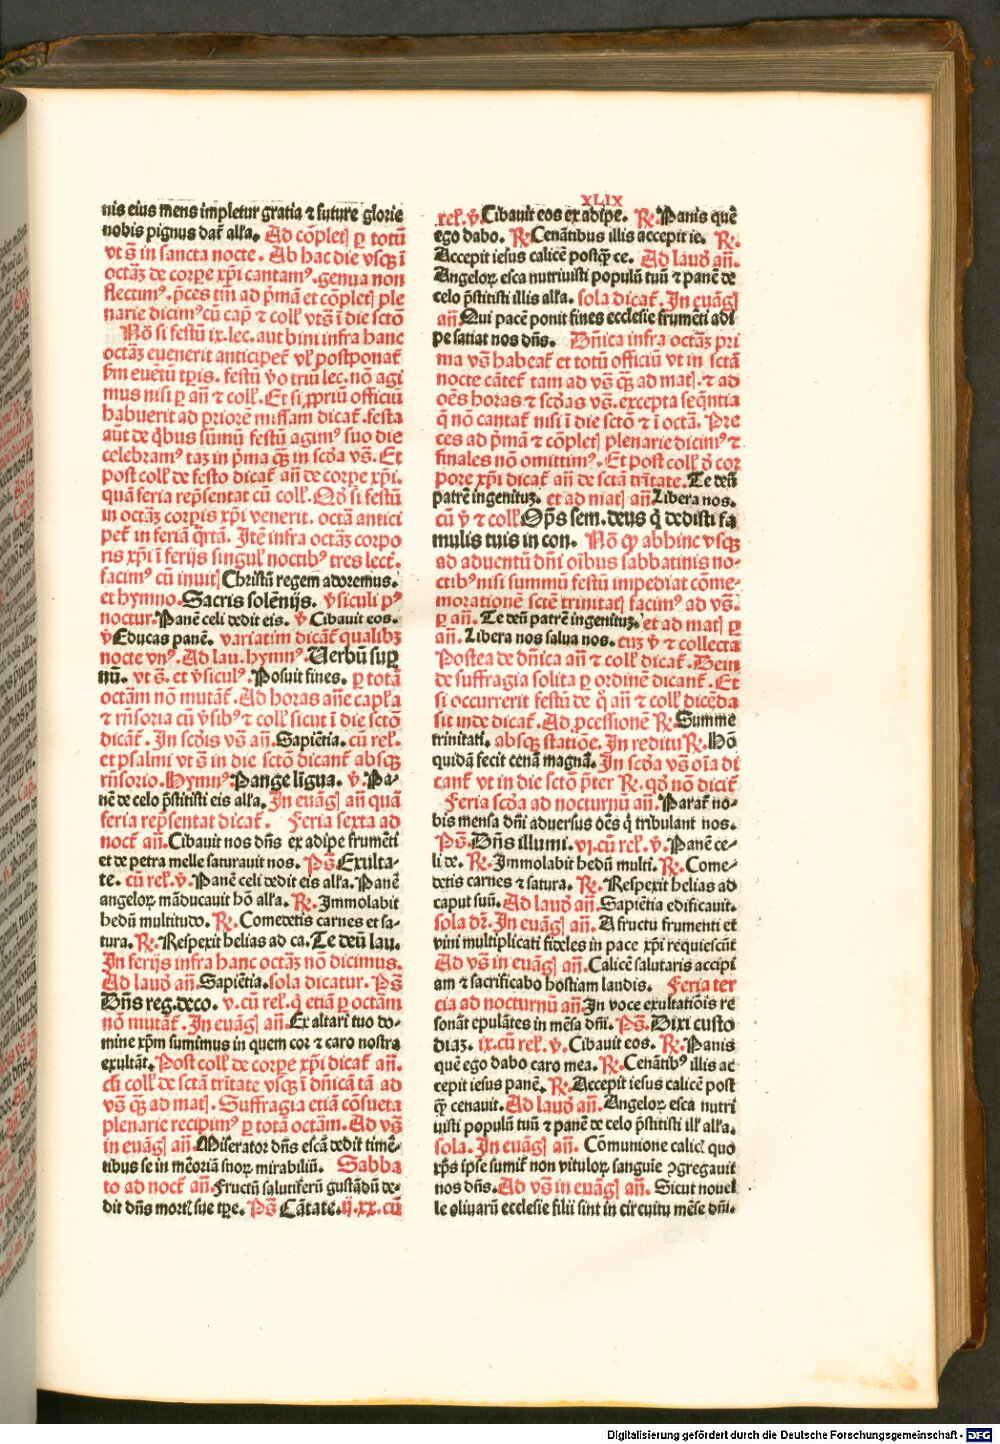 XLIX
nis eius mens impletur gratia ⁊ future glorie
nobis pignus dat̄ all'a. Ad cōplet̄ ꝑ totū
vt s̄ in sancta nocte. Ab hac die vsqꝫ ī
octaꝫ de corꝑe xp̄i cantamꝰ. genua non
flectimꝰ. p̄ces tm̄ ad p̄mā et cōplet̄ ple
narie dicimꝰ cū cap̄ ⁊ coll' vt s̄ ī die scto
Nō si festū ix. lec. aut bini infra hanc
octaꝫ euenerit anticipet̄ vl' postponat̄
fm euētū tꝑis. festū v̄o triū lec. nō agi
mus nisi ꝑ an̄ ⁊ coll'. Et si ꝓpriū officiū
habuerit ad priorē missam dicat̄. festa
aūt de q̄bus sūmū festū agimꝰ suo die
celebramꝰ taꝫ in p̄ma qꝫ in scd̄a vs̄. Et
post coll' de festo dicat̄ an̄ de corꝑe xp̄i.
quā feria rep̄sentat cū coll'. Qd̄ si festū
in octaꝫ corꝑis xp̄i venerit. octā antici
pet̄ in feriā q̄rtā. Itē infra octaꝫ corpo
ris xp̄i ī ferijs singul' noctibꝰ tres lect̄.
facimꝰ cū inuit̄ Christū regem adoremus.
et hymno. Sacris solēnijs. v̄siculi pꝰ
noctur. Panē celi dedit eis. v̄ Cibauit eos.
v̄ Educas panē. variatim dicāt̄ qualibꝫ
nocte vnꝰ. Ad lau. hymnꝰ. Uerbū suꝑ
nū. vt s̄. et v̄siculꝰ. Posuit fines. ꝑ totā
octām nō mutāt̄. Ad horas an̄e capl'a
⁊ rn̄soria cū v̄sibꝰ ⁊ coll' sicut ī die sctō
dicāt̄. In scd̄is vs̄ an̄. Sapiētia. cū rel'.
et psalmi vt s̄ in die sctō dicant̄ absqꝫ
rn̄sorio. Hymnꝰ. Pange līgua. v̄. Pa-
nē de celo p̄stitisti eis all'a. In euāḡ an̄ quā
feria rep̄sentat dicat̄. Feria sexta ad
noct̄ an̄. Cibauit nos dn̄s ex adipe frumēti
et de petra melle saturauit nos. Ps̄ Exulta-
te. cū rel'. v̄. Panē celi dedit eis all'a. Panē
angeloꝝ māducauit hō all'a. R̄. Immolabit
hedū multitudo. R̄. Comedetis carnes et sa-
tura. R̄. Respexit helias ad ca. Te deū lau.
In ferijs infra hanc octaꝫ nō dicimus.
Ad laud̄ an̄. Sapiētia. sola dicatur. Ps̄
Dn̄s reg. deco. v. cū rel'. q̄ etiā ꝑ octām
nō mutāt̄. In euāḡ an̄. Ex altari tuo do-
mine xp̄m sumimus in quem cor ⁊ caro nostra
exultāt. Post coll' de corꝑe xp̄i dicat̄ an̄.
cū coll' de sctā trītate vsqꝫ ī dn̄icā tā ad
vs̄ qꝫ ad mat̄. Suffragia etiā cōsueta
plenarie recipimꝰ ꝑ totā octām. Ad vs̄
in euāḡ an̄. Miserator dn̄s escā dedit timē-
tibus se in mēoriā suoꝝ mirabiliū. Sabba
to ad noct̄ an̄. Fructū salutiferū gustādū de-
dit dn̄s mort̄ sue tꝑe. Ps̄ Cātate. ij. xx. cū
rel'. v̄. Cibauit eos ex adipe. R̄. Panis quē
ego dabo. R̄. Cenātibus illis accepit ie. R̄.
Accepit iesus calicē postqꝫ ce. Ad laud̄ an̄.
Angeloꝝ esca nutriuisti populū tuū ⁊ panē de
celo p̄stitisti illis all'a. sola dicat̄. In euāḡ
an̄. Qui pacē ponit fines ecclesie frumēti adi
pe satiat nos dn̄s. Dn̄ica infra octaꝫ pri
ma vs̄ habeat̄ et totū officiū vt in sctā
nocte cātet̄ tam ad vs̄ qꝫ ad mat̄. ⁊ ad
oēs horas ⁊ scd̄as vs̄. excepta seq̄ntia
q̄ nō cantat̄ nisi ī die sctō ⁊ ī octā. Pre
ces ad p̄mā ⁊ cōplet̄ plenarie dicimꝰ ⁊
finales nō omittimꝰ. Et post coll' d̄ cor
pore xp̄i dicat̄ an̄ de sctā trītate. Te deū
patrē ingenituꝫ. et ad mat̄ an̄ Libera nos.
cū v̄ ⁊ coll' Om̄ps sem. deus q̄ dedisti fa
mulis tuis in con. Nō qꝫ abhinc vsqꝫ
ad aduentū dn̄i oībus sabbatinis no-
ctibꝰ nisi summū festū impediat cōme-
morationē sctē trinitat̄ facimꝰ ad vs̄.
ꝑ an̄. Te deū patrē ingenituꝫ. et ad mat̄ ꝑ
an̄. Libera nos salua nos. cuꝫ v̄ ⁊ collecta
Postea de dn̄ica an̄ ⁊ coll' dicat̄. Dein
de suffragia solita ꝑ ordinē dicant̄. Et
si occurrerit festū de q̄ an̄ ⁊ coll' dicēda
sit inde dicat̄. Ad ꝓcessionē R̄. Summe
trinitati. absqꝫ statiōe. In reditu R̄. Hō
quidā fecit cenā magnā. In scd̄a vs̄ oīa di
cant̄ vt in die sctō p̄ter R̄. qd̄ nō dicit̄
Feria scd̄a ad nocturnū an̄. Parat̄ no-
bis mensa dn̄i aduersus oēs q̄ tribulant nos.
Ps̄. Dn̄s illumi. vj. cū rel'. v̄. Panē ce-
li de. R̄. Immolabit hedū multi. R̄. Come-
detis carnes ⁊ satura. R̄. Respexit helias ad
caput suū. Ad laud̄ an̄. Sapiētia edificauit.
sola dr̄. In euāḡ an̄. A fructu frumenti et
vini multiplicati fideles in pace xp̄i requiescūt
Ad vs̄ in euāḡ an̄. Calicē salutaris accipi
am ⁊ sacrificabo hostiam laudis. Feria ter
cia ad nocturnū an̄. In voce exultatiōis re
sonāt epulātes in mēsa dn̄i. Ps̄. Dixi custo
diaꝫ. ix. cū rel'. v̄. Cibauit eos. R̄. Panis
quē ego dabo caro mea. R̄. Cenātibꝰ illis ac
cepit iesus panē. R̄. Accepit iesus calicē post
qꝫ cenauit. Ad laud̄ an̄. Angeloꝝ esca nutri
uisti populū tuū ⁊ panē de celo p̄stitisti ill' all'a.
sola. In euāḡ an̄. Cōmunione calic̄ quo
xp̄s ipse sumit̄ non vituloꝝ sanguie ꝯgregauit
nos dn̄s. Ad vs̄ in euāḡ an̄. Sicut nouel
le oliuarū ecclesie filii sint in circuitu mēse dn̄i.